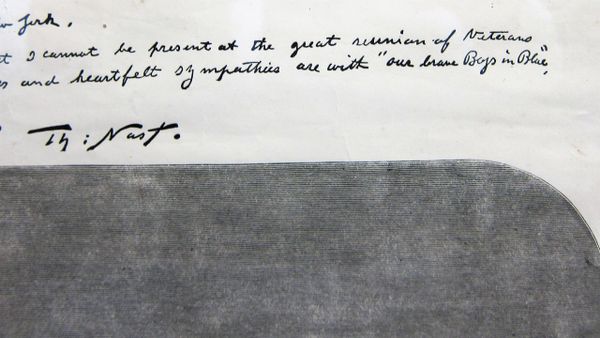 York.
t I cannot be present at the great reunion of Veterans
s and heartfelt sympathies are with "our brave Boys in Blue",
Th: Nast.